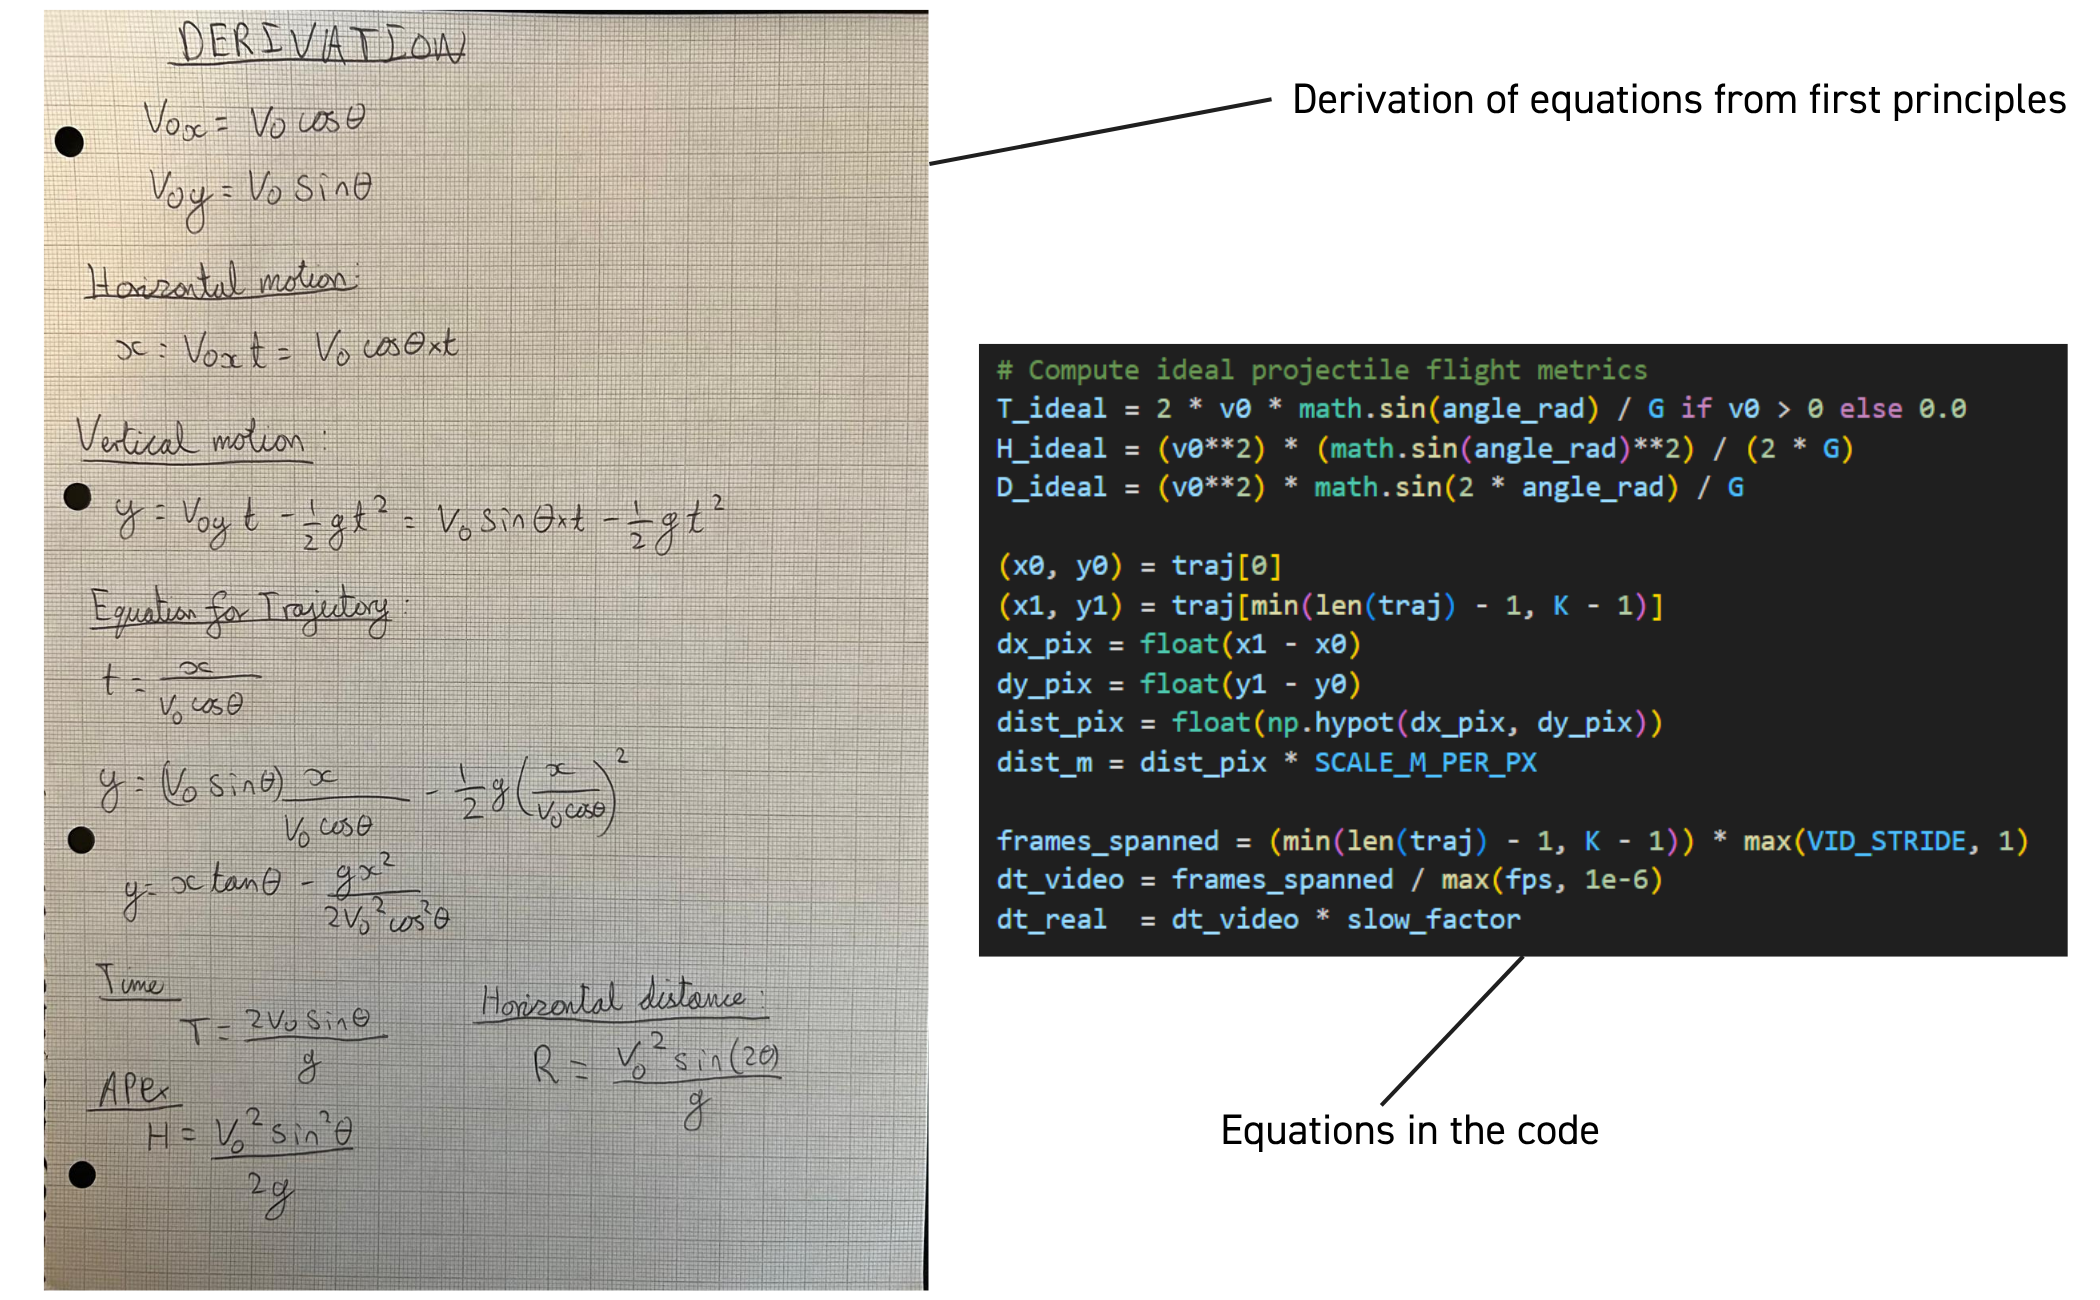 DERIVATION
V₀ₓ = V₀ cosθ
V₀y = V₀ sinθ
Horizontal motion:
x = V₀ₓ t = V₀ cosθ×t
Vertical motion:
y = V₀y t - 1/2 gt² = V₀ sinθ×t - 1/2 gt²
Equation for Trajectory:
t = x / V₀ cosθ
y = (V₀ sinθ) x / V₀ cosθ - 1/2 g (x / V₀ cosθ)²
y = x tanθ - gx² / 2V₀² cos²θ
Time
T = 2V₀ sinθ / g
APex
H = V₀² sin²θ / 2g
Horizontal distance:
R = V₀² sin(2θ) / g
Derivation of equations from first principles
# Compute ideal projectile flight metrics
T_ideal = 2 * v0 * math.sin(angle_rad) / G if v0 > 0 else 0.0
H_ideal = (v0**2) * (math.sin(angle_rad)**2) / (2 * G)
D_ideal = (v0**2) * math.sin(2 * angle_rad) / G
(x0, y0) = traj[0]
(x1, y1) = traj[min(len(traj) - 1, K - 1)]
dx_pix = float(x1 - x0)
dy_pix = float(y1 - y0)
dist_pix = float(np.hypot(dx_pix, dy_pix))
dist_m = dist_pix * SCALE_M_PER_PX
frames_spanned = (min(len(traj) - 1, K - 1)) * max(VID_STRIDE, 1)
dt_video = frames_spanned / max(fps, 1e-6)
dt_real  = dt_video * slow_factor
Equations in the code